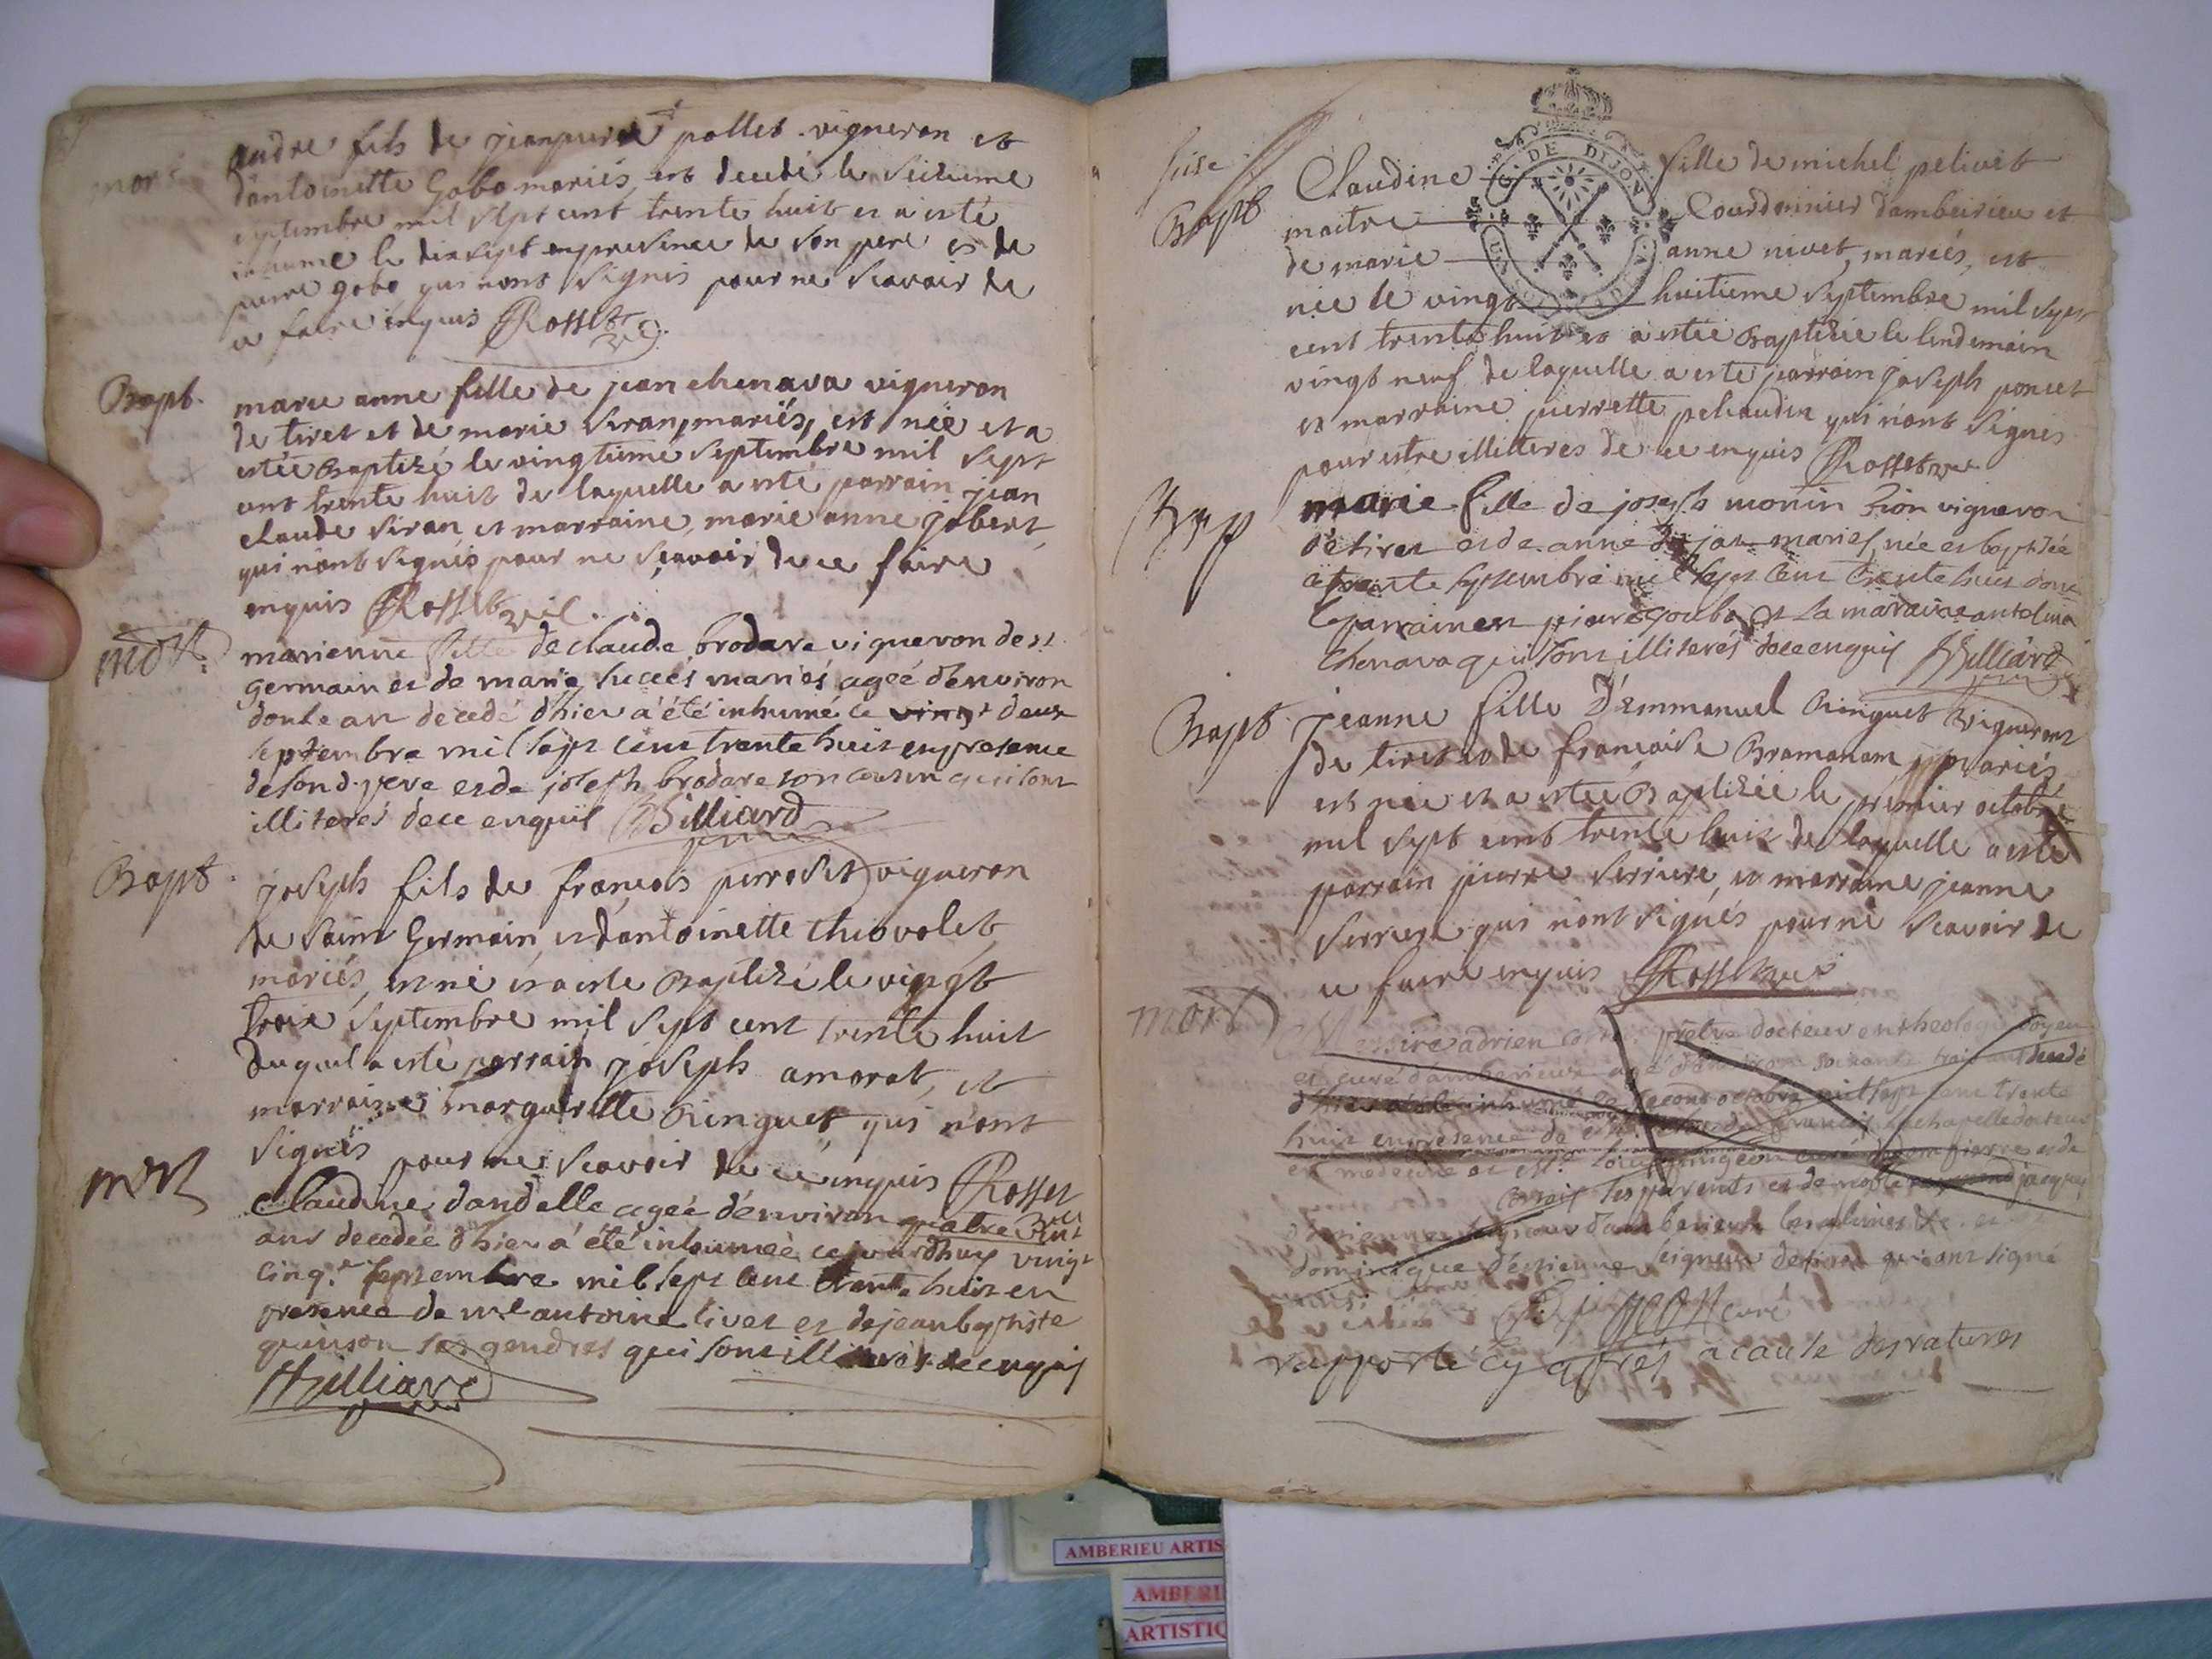 mort
andre fils de jean pierre pollet vigneron et
d'antoinette Gobo mariés, est decedé le seizieme
septembre mil sept cent trente huit et a esté
inhumé le dixsept en presence de son pere et de
pierre gobo qui n'ont signés pour ne scavoir de
ce faire enquis Rosset vic.
Bapt.
marie anne fille de jean chenava vigneron
de tiret et de marie siran, mariés, est née et a
estée Baptizé le vingtieme septembre mil sept
cent trente huit de laquelle a esté parrain jean
claude siran et marraine marie anne jobert
qui n'ont signés pour ne scavoir de ce faire
enquis Rosset vic.
mort
marienne fille de claude brodare vigneron de st
germain et de marie mariés agée d'environ
un an decedé d'hier a été inhumé le vingt deux
septembre mil sept cent trente huit en presence
de sond. pere et de joseph brodare son cousin qui sont
illiterés de ce enquis Billiard
Bapt.
joseph fils de francois perroset vigneron
de saint Germain, et d'antoinette thiovolet
mariés, est né et a esté Baptizé le vingt
trois septembre mil sept cent trente huit
duquel a esté parrain joseph amorat, et
marraine margueritte Ringuet qui n'ont
signés
pour ne scavoir de ce enquis Rosset
vic
mort
Claudine dandelle agée d'environ quatre vint
ans decedée d'hier a été inhumeé ce jourdhuy vingt
cinq.e septembre mil sept cent trente huit en
presence de me antoine livet et de jean baptiste
quinson ses gendres qui sont illiterés de ce enquis
Billiard
G. DE DIJON
Bapt
Claudine fille de michel pelivet
maitre Courdonnier d'ambeirieu et
de marie anne nivet, mariés, est
née le vingt huitieme septembre mil sept
cent trente huit et a estée Baptizée le lendemain
vingt neuf de laquelle a esté parrain joseph poncet
et marraine pierrette pehaudin qui n'ont signés
pour estre illitteres de ce enquis Rosset vic
Bap
marie fille de joseph monin vigneron
de tiret et de anne mariés, née et baptisée
le trente septembre mil sept cent trente huit dont
le parrain est pierre goubo et la maraine
chenava qui sont illiterés de ce enquis Billiard
Bapt
jeanne fille d'Emmanuel Ringuet vigneron
de tiret et de francoise Bramanam, mariés
est née et a estée Baptizée le premier octobre
mil sept cent trente huit de laquelle a esté
parrain pierre serriere, et marraine jeanne
serriere qui n'ont signés pour ne scavoir de
ce faire enquis Rosset vic
mort
Messire adrien prêtre docteur en theologie doyen
et curé d'amberieux agé d'environ soixante trois ans decedé
d'hier a été inhumé le second octobre mil sept cent trente
huit en presence de francois lachapelle docteur
en medecine et pingeon curé pierre et de
ses parents et de noble jacques
seigneur d'amberieux et
dominique d'estienne seigneur de tiret qui ont signé
pingeon curé
rapporté cy apprés a cause des ratures
AMBERIEU ARTIS
AMBERI
ARTISTIQ